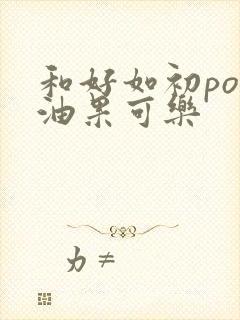 和好如初po
油果可樂
力≠